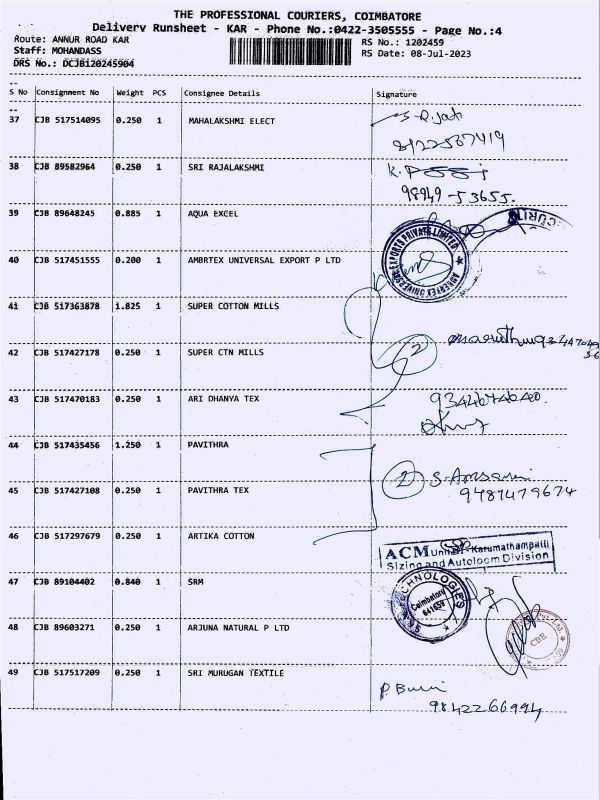 THE PROFESSIONAL COURIERS, COIMBATORE
Delivery Runsheet - KAR - Phone No.:0422-3505555 - Page No.:4
Route: ANNUR ROAD KAR
RS No.: 1202459
Staff: MOHANDASS
RS Date: 08-Jul-2023
DRS No.: DCJB120245904
S No Consignment No Weight PCS Consignee Details Signature
37 CJB 517514095 0.250 1 MAHALAKSHMI ELECT
8122587419
38 CJB 89582964 0.250 1 SRI RAJALAKSHMI
98949-53655.
39 CJB 89648245 0.885 1 AQUA EXCEL
40 CJB 517451555 0.200 1 AMBRTEX UNIVERSAL EXPORT P LTD
41 CJB 517363878 1.825 1 SUPER COTTON MILLS
2
42 CJB 517427178 0.250 1 SUPER CTN MILLS
43 CJB 517470183 0.250 1 ARI DHANYA TEX
44 CJB 517435456 1.250 1 PAVITHRA
2
45 CJB 517427108 0.250 1 PAVITHRA TEX
9487479674
46 CJB 517297679 0.250 1 ARTIKA COTTON
ACM Unit Karumathampatti
Sizing and Autoloom Division
47 CJB 89104402 0.840 1 SRM
TECHNOLOGIES
Coimbatore
641659
48 CJB 89603271 0.250 1 ARJUNA NATURAL P LTD
CBE
49 CJB 517517209 0.250 1 SRI MURUGAN TEXTILE
9842266994